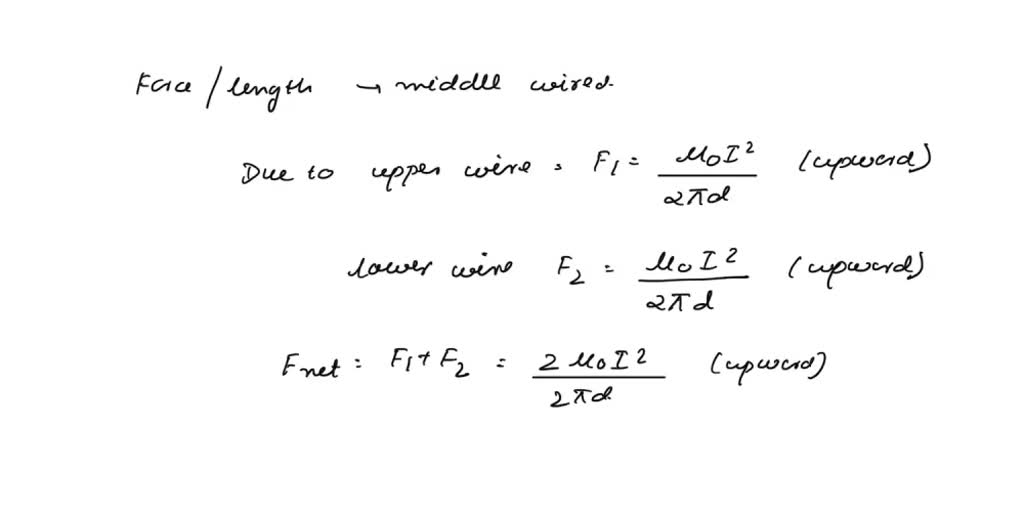 Force / length → middle wired.
Due to upper wire = F₁ = μ₀I² / 2πd (upward)
lower wire F₂ = μ₀I² / 2πd (upward)
Fnet = F₁ + F₂ = 2μ₀I² / 2πd (upward)